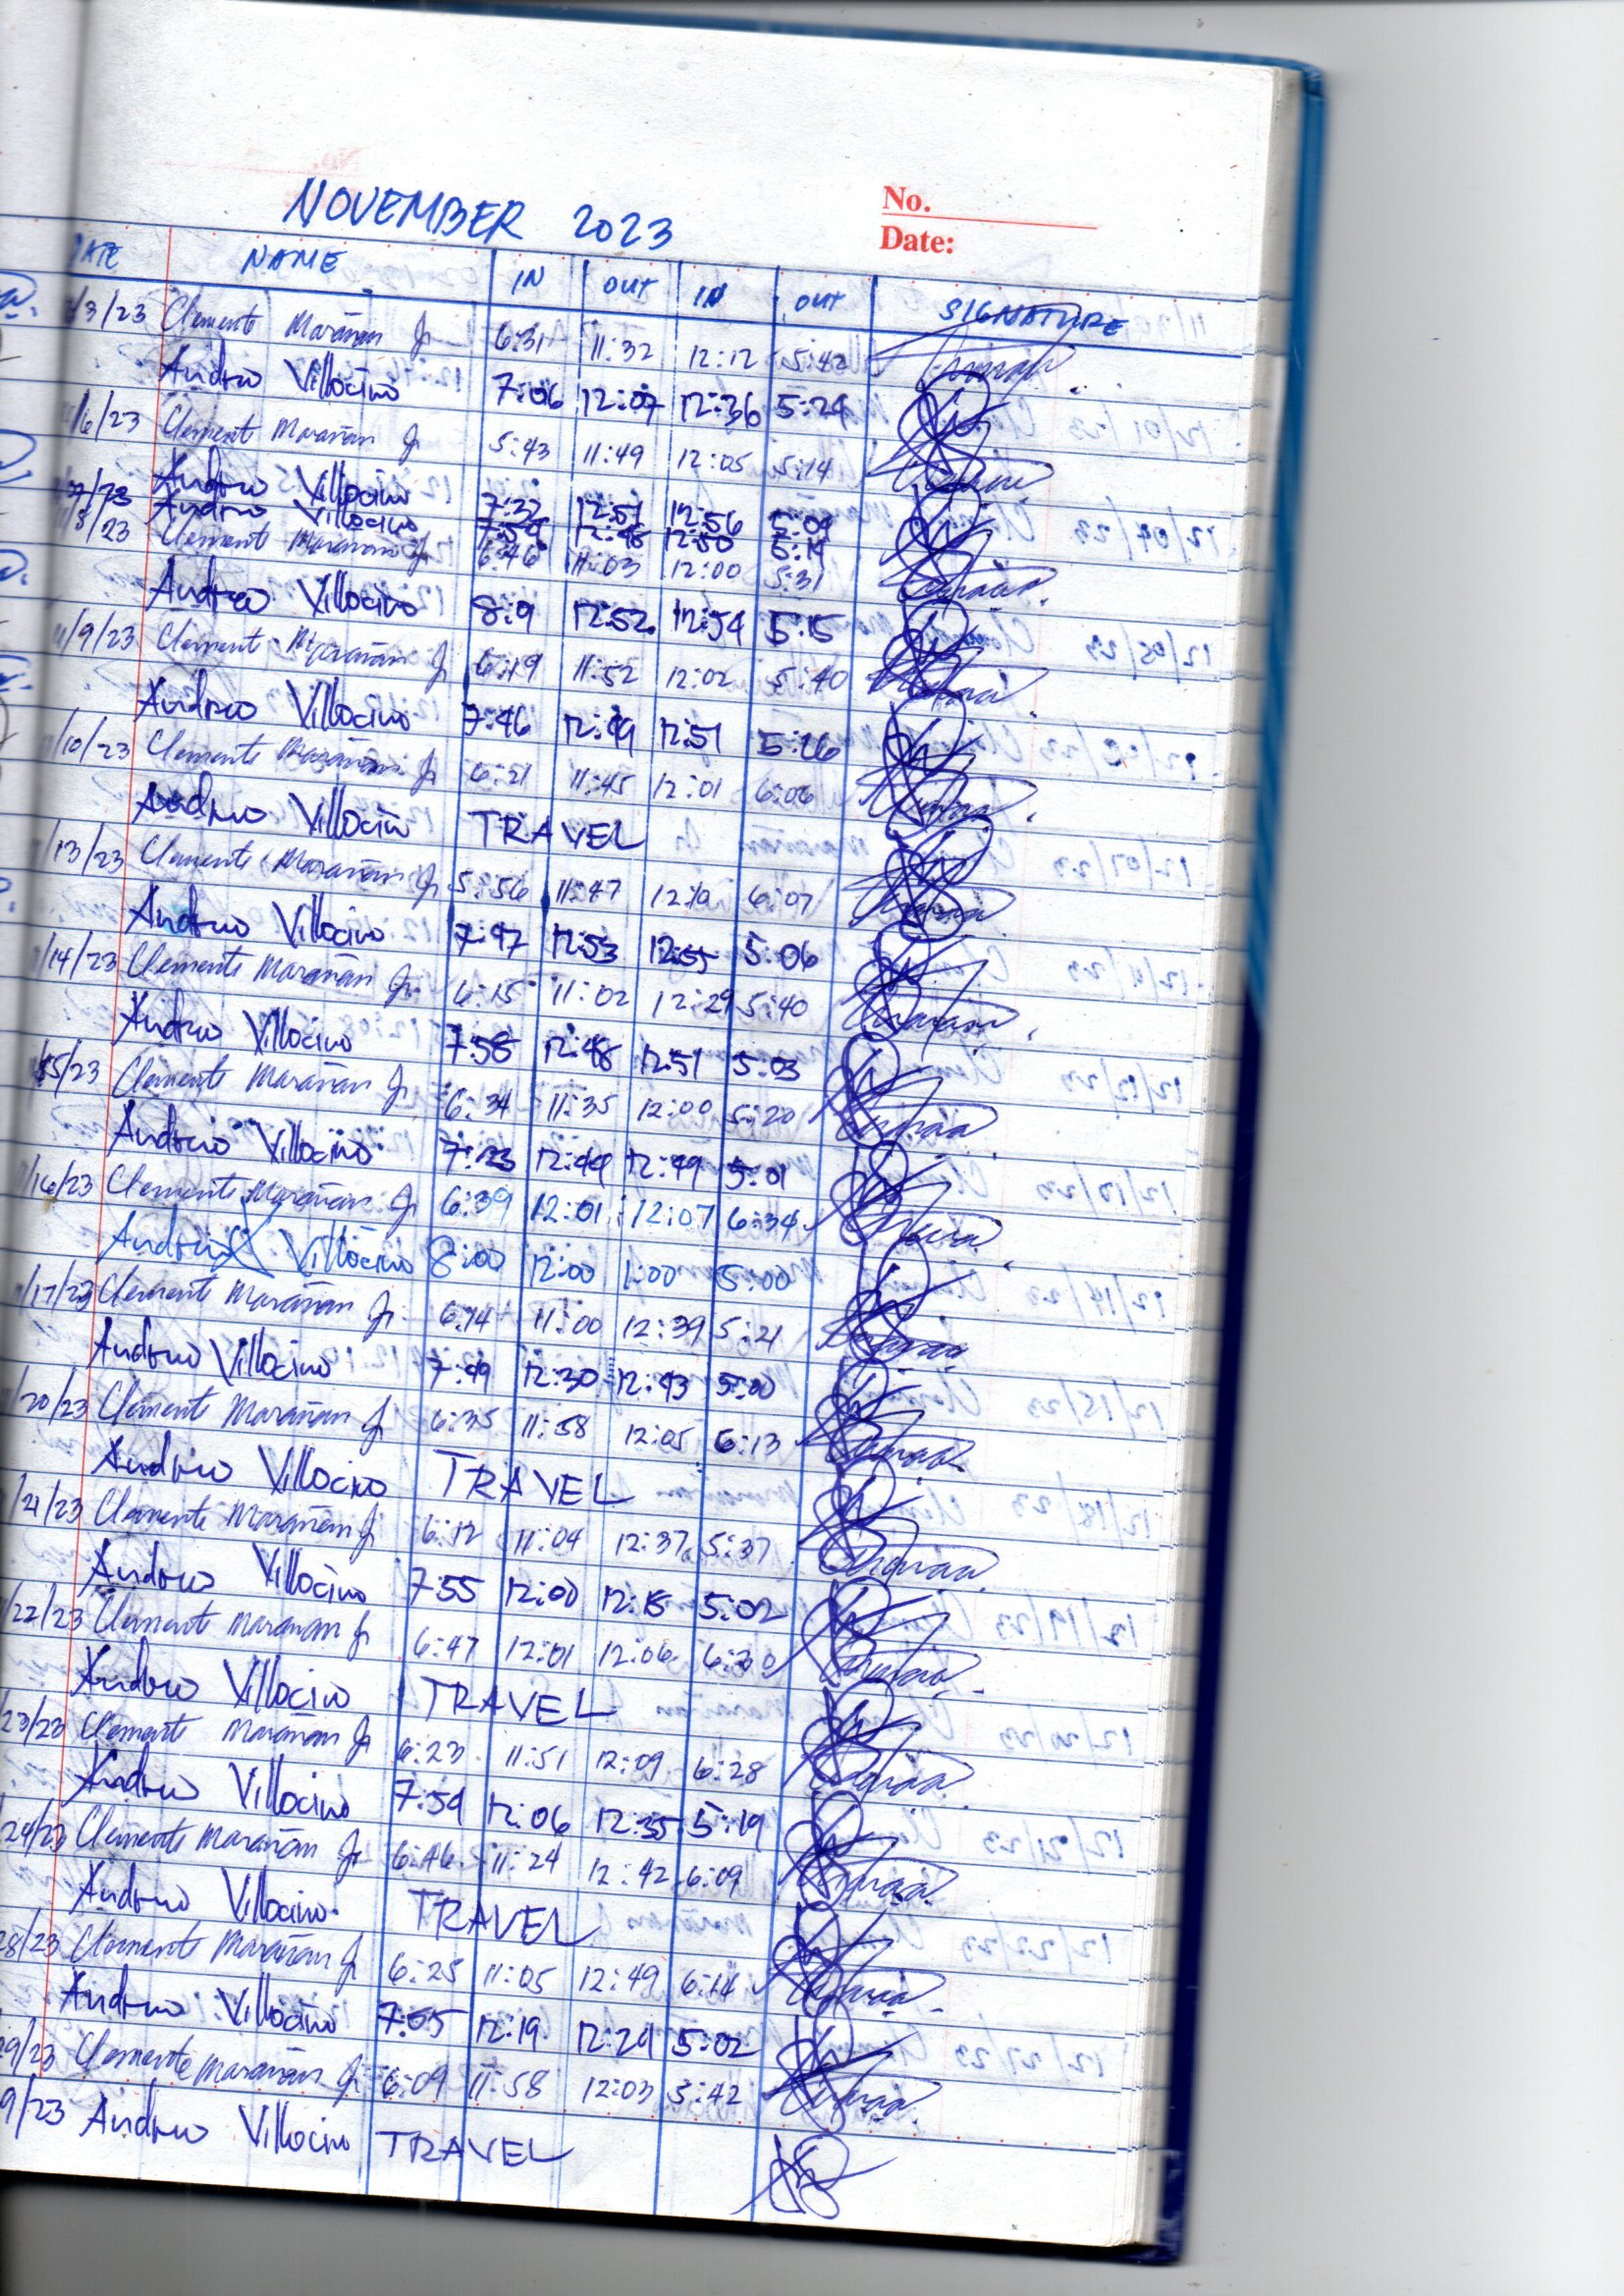 No.
Date:
NOVEMBER 2023
DATE NAME IN OUT IN OUT SIGNATURE
/3/23 Clemente Marañan Jr 6:31 11:32 12:12 5:42
Andrew Villocino 7:06 12:07 12:36 5:24
/6/23 Clemente Marañan Jr 5:43 11:49 12:05 5:14
Andrew Villocino 7:22 12:51 12:56 5:09
7/23 Andrew Villocino 7:54 12:48 12:50 5:14
/8/23 Clemente Marañan Jr 6:46 11:03 12:00 5:31
Andrew Villocino 8:9 12:52 12:54 5:15
11/9/23 Clemente Marañan Jr 6:19 11:52 12:02 5:40
Andrew Villocino 7:46 12:49 12:51 5:26
/10/23 Clemente Marañan Jr 6:21 11:45 12:01 6:06
Andrew Villocino TRAVEL
/13/23 Clemente Marañan Jr 5:56 11:47 12:10 6:07
Andrew Villocino 7:47 12:53 12:55 5:06
/14/23 Clemente Marañan Jr. 6:15 11:02 12:29 5:40
Andrew Villocino 7:58 12:48 12:51 5:03
/15/23 Clemente Marañan Jr 6:34 11:35 12:00 5:20
Andrew Villocino 7:23 12:44 12:49 5:01
/16/23 Clemente Marañan Jr 6:39 12:01 12:07 6:34
Andrew Villocino 8:00 12:00 1:00 5:00
/17/23 Clemente Marañan Jr. 6:14 11:00 12:39 5:21
Andrew Villocino 7:49 12:30 12:43 5:00
/20/23 Clemente Marañan Jr 6:35 11:58 12:05 6:13
Andrew Villocino TRAVEL
/21/23 Clemente Marañan Jr 6:12 11:04 12:37 5:37
Andrew Villocino 7:55 12:00 12:18 5:02
/22/23 Clemente Marañan Jr 6:47 12:01 12:06 6:30
Andrew Villocino TRAVEL
23/23 Clemente Marañan Jr 6:23 11:51 12:09 6:28
Andrew Villocino 7:54 12:06 12:35 5:19
24/23 Clemente Marañan Jr 6:46 11:24 12:42 6:09
Andrew Villocino TRAVEL
28/23 Clemente Marañan Jr 6:25 11:05 12:49 6:14
Andrew Villocino 7:05 12:19 12:29 5:02
29/23 Clemente Marañan Jr 6:09 11:58 12:03 5:42
9/23 Andrew Villocino TRAVEL